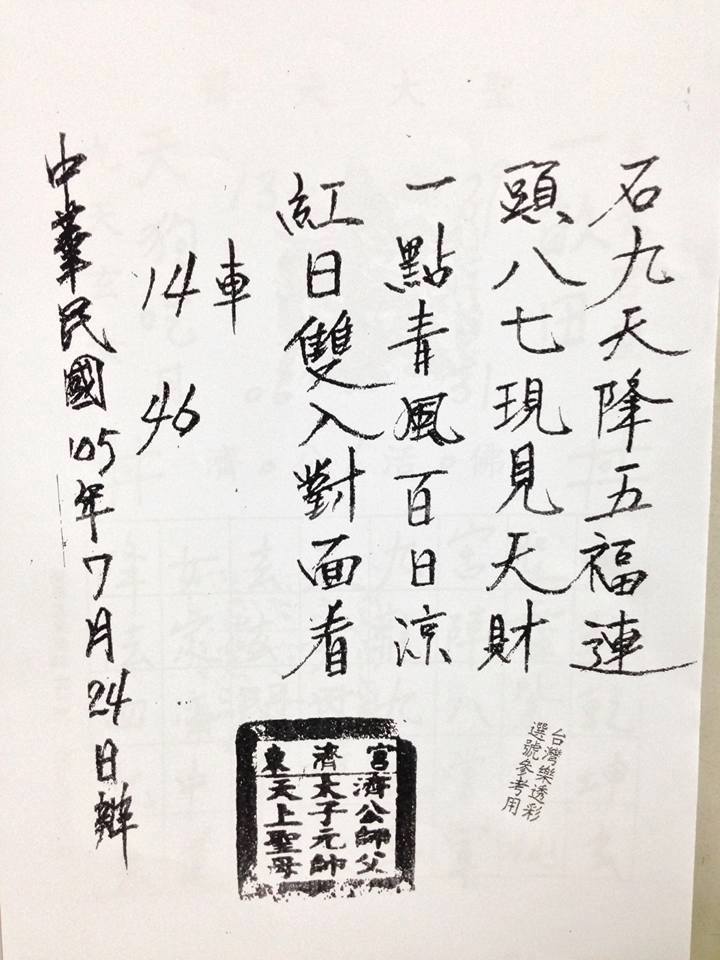 石九天降五福連
頭八七現見天財
一點青風百日涼
紅日雙入對面看
車
14 46
中華民國105年7月24日辦
台灣樂透彩
選號參考用
宮濟東
濟公師父
太子元帥
天上聖母